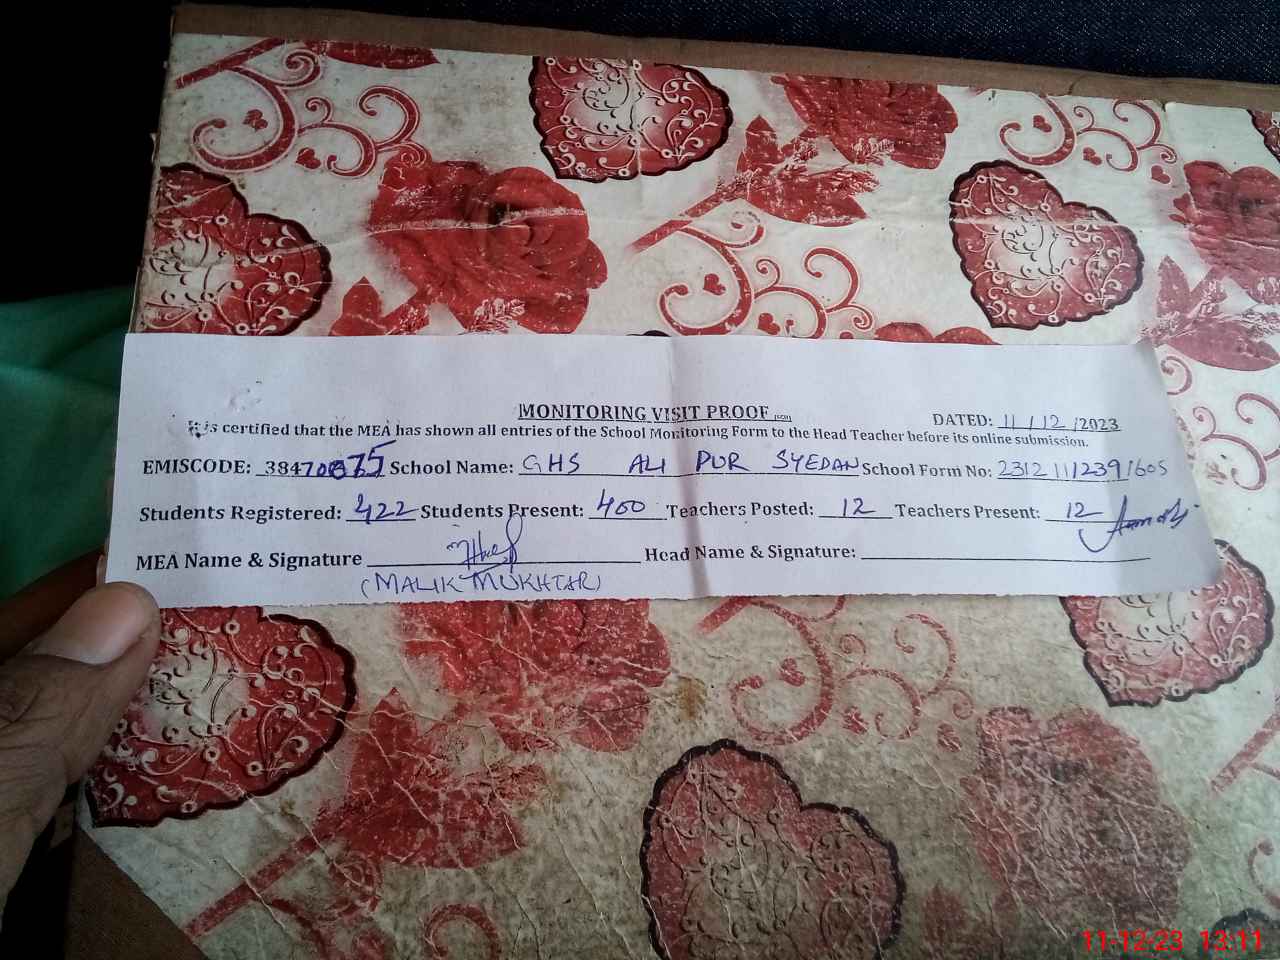 MONITORING VISIT PROOF
DATED: 11/12/2023
It is certified that the MEA has shown all entries of the School Monitoring Form to the Head Teacher before its online submission.
EMISCODE: School Name: GHS ALI PUR SYEDAN School Form No: 23121112391605
Students Registered: 422 Students Present: 400 Teachers Posted: 12 Teachers Present: 12
MEA Name & Signature Head Name & Signature:
(MALIK MUKHTAR)
11-12-23 13:11